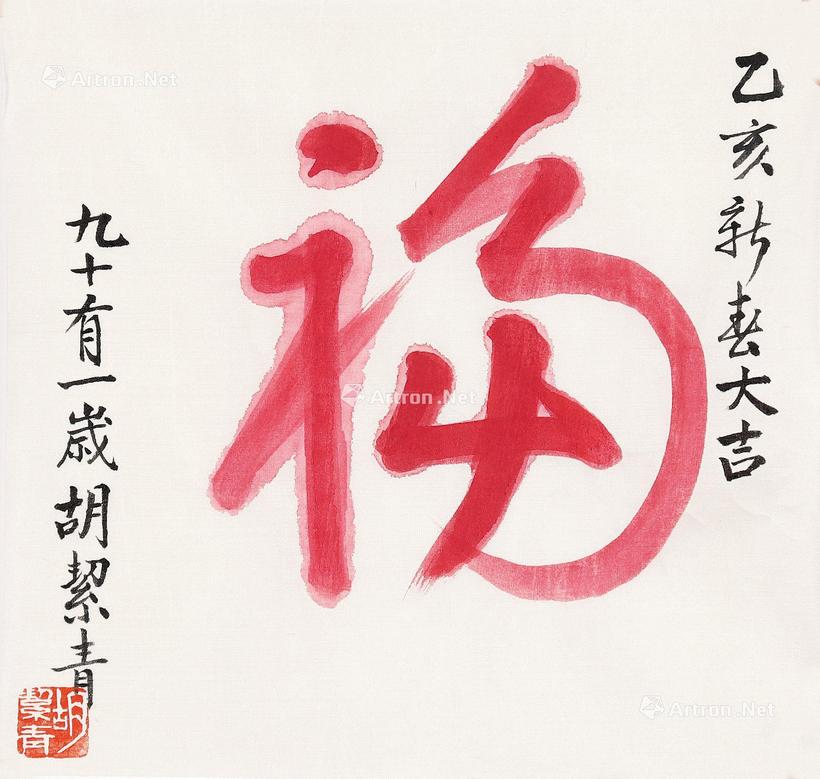 乙亥新春大吉
福
九十有一歲胡絜青
胡絜青
Artron.Net
Artron.Net
Artron.Net